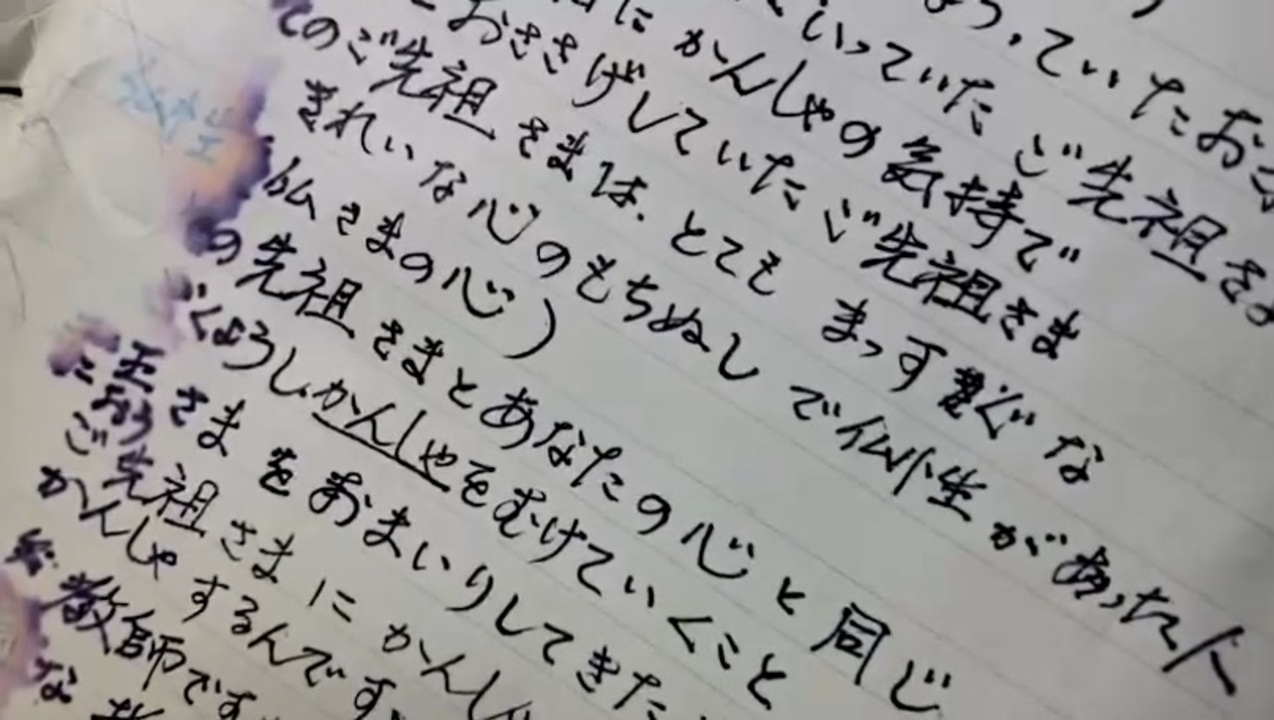 ていたお
いっていたご先祖さま
にかんしゃの気持で
おささげしていたご先祖さま
てのご先祖さまは、とてもまっすぐな
きれいな心のもちぬしで仏性があった人
仏さまの心)
の先祖さまとあなたの心と同じ
くようしかんしゃをむけていくこと
さまをおまいりしてきた
ご先祖さまにかんし
かんしゃするんです
教師です
な